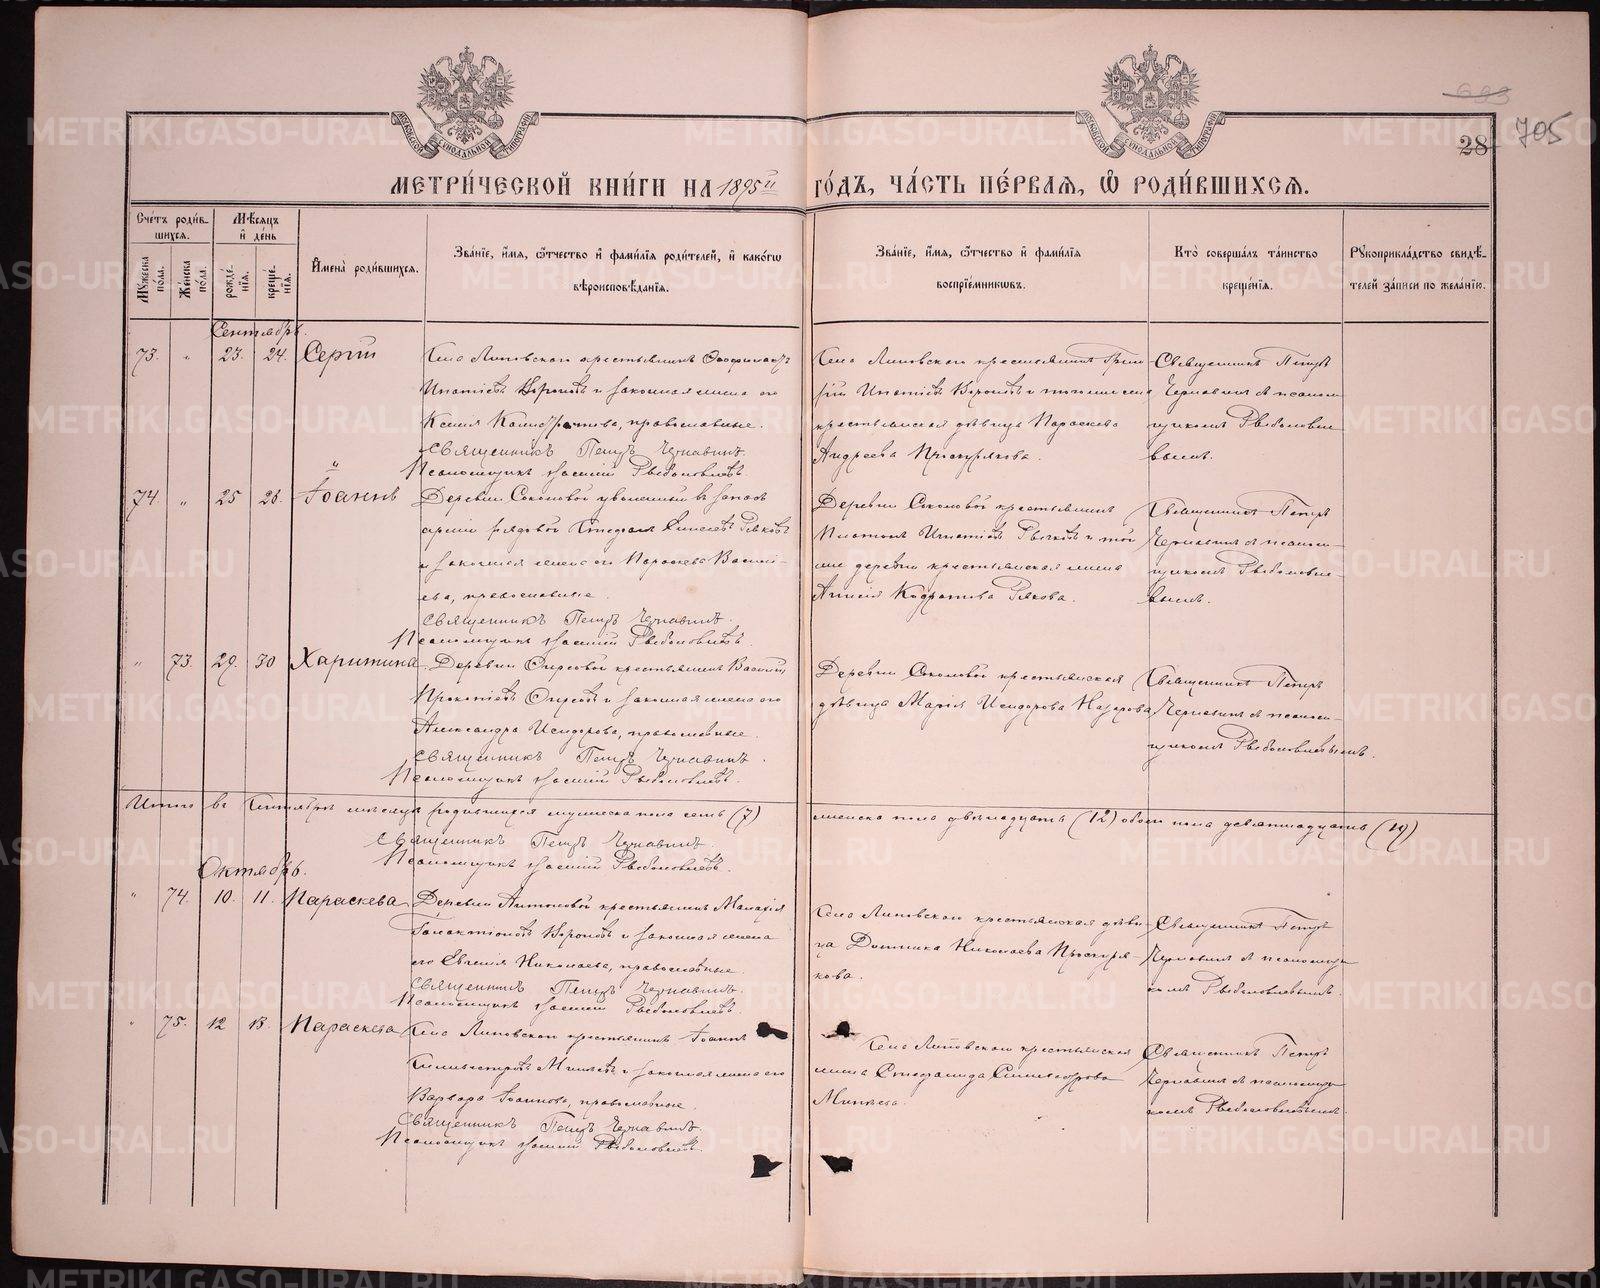 МОСКОВСКОЙ СѴНОДАЛЬНОЙ ТИПОГРАФІИ
МОСКОВСКОЙ СѴНОДАЛЬНОЙ ТИПОГРАФІИ
693
28 705
МЕТРИ́ЧЕСКОЙ КНИ́ГИ НА 1895й ГО́ДЪ, ЧА́СТЬ ПЕ́РВАѦ, Ѡ҆ РОДИ́ВШИХСѦ.
Сче́тъ роди́в-
шихсѧ.
Мꙋ́жеска по́ла.
Же́нска по́ла.
Мѣ́сѧцъ и҆ де́нь
рожде́-нїѧ.
креще́-нїѧ.
И҆мена̀ роди́вшихсѧ.
Зва́нїе, и҆́мѧ, ѻ҆́тчество и҆ фами́лїѧ роди́телей, и҆ како́гѡ
вѣроисповѣ́данїѧ.
Зва́нїе, и҆́мѧ, ѻ҆́тчество и҆ фами́лїѧ
воспрїе́мникѡвъ.
Кто̀ соверша́лъ та́инство
креще́нїѧ.
Рꙋкоприкла́дство свидѣ́-
телей за́писи по жела́нїю.
Сентябрь.
73. " 23. 24. Сергій
Села Липовскаго крестьянинъ
Ипатіевъ Вороновъ и законная жена его
Ксенія Калистратова, православные.
Священникъ Петръ Чернавинъ.
Псаломщикъ Рыболовлевъ.
Села Липовскаго крестьянинъ Григо-
рій Ипатіевъ Вороновъ и того же села
крестьянская дѣвица Параскева
Андреева Проскурякова.
Священникъ Петръ
Чернавинъ съ псалом-
щикомъ Рыболовле-
вымъ.
74. " 25 26. Іоаннъ
Деревни Соколовой уволенный въ запасъ
арміи рядовой Стефанъ Ряковъ
и законная жена его Параскева Василі-
ева, православные.
Священникъ Петръ Чернавинъ.
Псаломщикъ Рыболовлевъ.
Деревни Соколовой крестьянинъ
Платонъ Игнатіевъ и той
же деревни крестьянская жена
Кодратова Рякова.
Священникъ Петръ
Чернавинъ съ псалом-
щикомъ Рыболовле-
вымъ.
" 73. 29. 30 Харитина
Деревни крестьянинъ Василій
Прокопіевъ и законная жена его
Александра Исидорова, православные.
Священникъ Петръ Чернавинъ.
Псаломщикъ Рыболовлевъ.
Деревни Соколовой крестьянская
дѣвица Марія Исидорова Назарова
Священникъ Петръ
Чернавинъ съ псалом-
щикомъ Рыболовлевымъ.
Итого въ Сентябрѣ мѣсяцѣ родившихся мужеска пола семь (7) женска пола двѣнадцать (12) обоего пола девятнадцать (19)
Священникъ Петръ Чернавинъ.
Псаломщикъ Рыболовлевъ.
Октябрь.
" 74. 10. 11. Параскева
Деревни Антоновой крестьянинъ
Галактіоновъ Вороновъ и законная жена
его Евгенія Николаева, православные.
Священникъ Петръ Чернавинъ.
Псаломщикъ Рыболовлевъ
Села Липовскаго крестьянская дѣви-
ца Домника Николаева Проскуря-
кова.
Священникъ Петръ
Чернавинъ съ псаломщи-
комъ Рыболовлевымъ.
" 75. 12 13. Параскева
Села Липовскаго крестьянинъ Іоаннъ
Сильвестровъ Минѣевъ и законная жена его
Варвара Іоаннова, православные.
Священникъ Петръ Чернавинъ.
Псаломщикъ Рыболовлевъ.
Села Липовскаго крестьянская
жена Стефанида Сильвестрова
Минѣева.
Священникъ Петръ
Чернавинъ съ псаломщи-
комъ Рыболовлевымъ.
METRIKI.GASO-URAL.RU